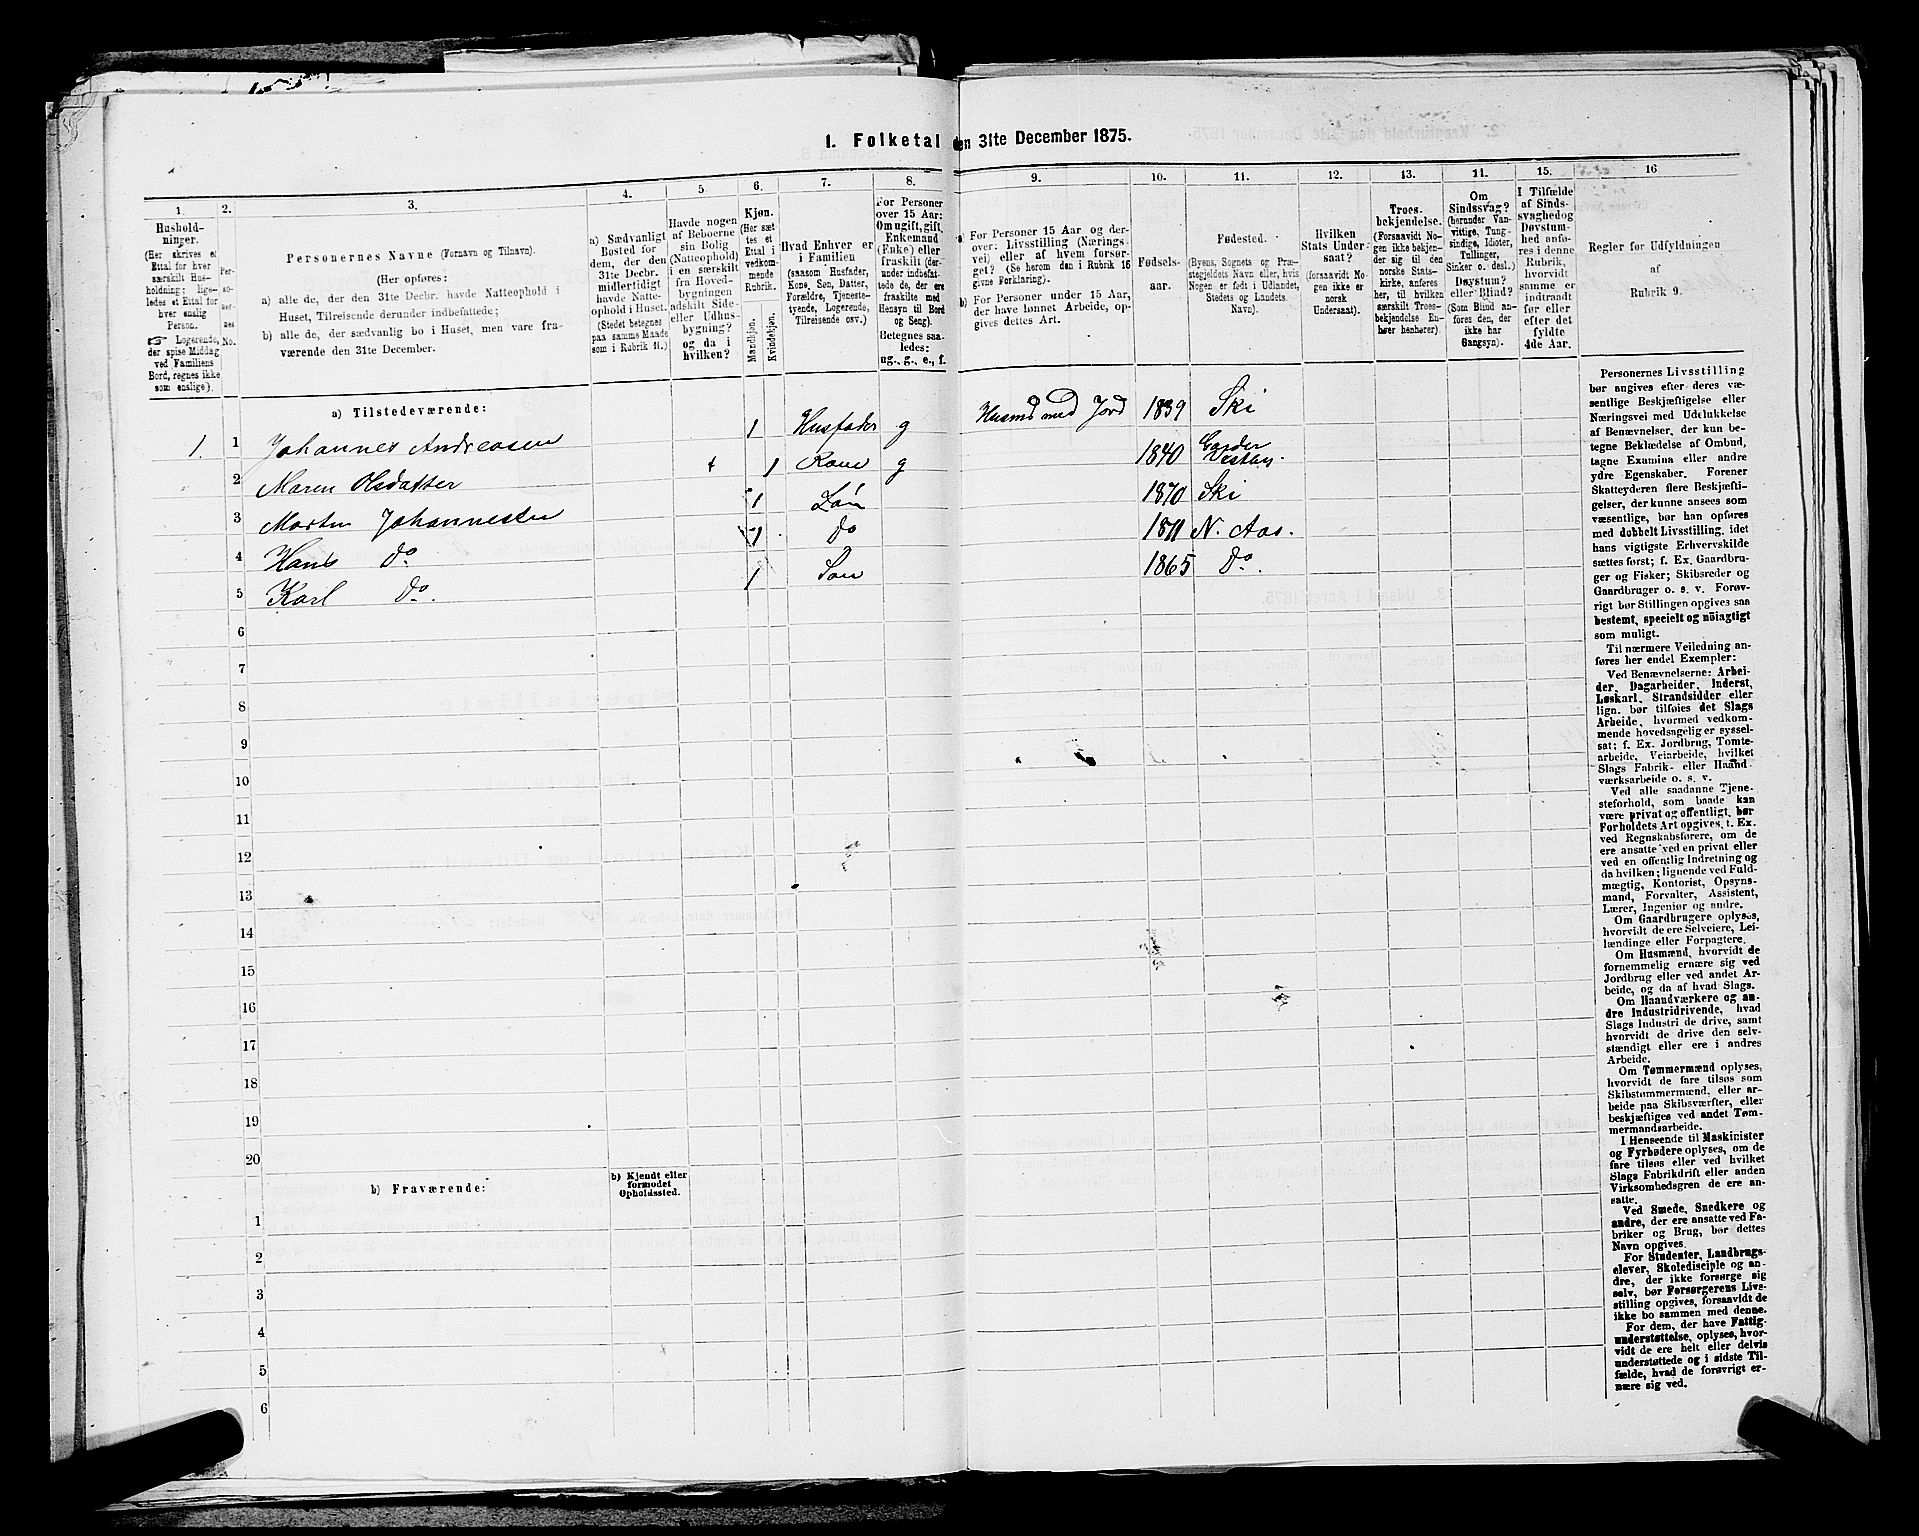 1. Folketal den 31te December 1875.
1.
Hushold-
ninger.
(Her skrives et
Ettal for hver
særskilt Hus-
holdning; lige-
ledes et Ettal for
hver enslig
Person.
☞ Logerende,
der spise Middag
ved Familiens
Bord, regnes ikke
som enslige).
2.
Per-
so-
ner-
nes
No.
3.
Personernes Navne (Fornavn og Tilnavn).
(Her opføres:
a) alle de, der den 31te Decbr. havde Natteophold i
Huset, Tilreisende derunder indbefattede;
b) alle de, der sædvanlig bo i Huset, men vare fra-
værende den 31te December.
4.
a) Sædvanligt
Bosted for
dem, der den
31te Decbr.
midlertidigt
havde Natte-
ophold i Huset.
(Stedet betegnes
paa samme Maade
som i Rubrik 11.)
5
Havde nogen
af Beboerne
sin Bolig
(Natteophold)
i en særskilt
fra Hoved-
bygningen
adskilt Side-
eller Udhus-
bygning?
og da i
hvilken?
6.
Kjøn.
(Her sæt
tes et
Ettal i
vedkom-
mende
Rubrik.
Mandkjøn.
Kvindekjøn.
7.
Hvad Enhver er
i Familien
(saasom Husfader,
Kone, Søn, Datter,
Forældre, Tjeneste-
tyende, Logerende,
Tilreisende osv.)
8.
For Personer
over 15 Aar:
Om ugift, gift,
Enkemand
(Enke) eller
fraskilt (der-
under indbefat-
tede de, der ere
fraskilte med
Hensyn til Bord
og Seng).
Betegnes saa-
ledes:
ug., g., e., f.
9.
a) For Personer 15 Aar og der-
over: Livsstilling (Nærings-
vei) eller af hvem forsør-
get? (Se herom den i Rubrik 16
givne Forklaring).
b) For Personer under 15 Aar,
der have lønnet Arbeide, op-
gives dettes Art.
10.
Fødsels-
aar.
11.
Fødested.
(Byens, Sognets og Præ-
stegjeldets Navn eller, hvis
Nogen er født i Udlandet,
Stedets og Landets
Navn).
12.
Hvilken
Stats Under-
saat?
(forsaavidt No-
gen ikke er
norsk
Undersaat).
13.
Troes-
bekjendelse.
(Forsaavidt No-
gen ikke bekjen-
der sig til den
norske Stats-
kirke, anføres
her, til hvilken
særskilt Troes-
bekjendelse En-
hver henhører).
11.
Om
Sindssvag?
(herunder Van-
vittige, Tung-
sindige, Idioter,
Tullinger,
Sinker o. desl.)
Døvstum?
eller Blind?
(Som Blind an-
føres den, der
ikke har
Gangsyn).
15.
I Tilfælde
af Sinds-
svaghed og
Døvstum-
hed anfø-
res i denne
Rubrik,
hvorvidt
samme er
indtraadt
før eller
efter det
fyldte
4de Aar.
16
Regler for Udfyldningen
af
Rubrik 9.
a) Tilstedeværende:
1. 1 Johannes Andreasen 1 Husfader g Husmd med Jord 1839 Ski
2 Maren Olsdatter 1 Kone g 1840 Garder Vestby.
3 Martin Johannesen 1 Søn 1870 Ski
4 Hans Do 1 Do 1871 N. Aas.
5 Karl Do. 1 Søn 1865 Do.
6
7
8
9
10
11
12
13
14
15
16
17
18
19
20
b) Fraværende:
b) Kjendt eller
formodet
Opholdssted.
1
2
3
4
5
6
Personernes Livsstilling
bør angives efter deres væ-
sentlige Beskjæftigelse eller
Næringsvei med Udelukkelse
af Benævnelser, der kun be-
tegne Beklædelse af Ombud,
tagne Examina eller andre
ydre Egenskaber. Forener
Skatteyderen flere Beskjæfti-
gelser, der kunne ansees som
væsentlige, bør han opføres
med dobbelt Livsstilling, idet
hans vigtigste Erhvervskilde
sættes først; f. Ex. Gaardbru-
ger og Fisker; Skibsreder og
Gaardbruger o. s. v. Forøv-
rigt bør Stillingen opgives saa
bestemt, specielt og nøiagtigt
som muligt.
Til nærmere Veiledning an-
føres her endel Exempler:
Ved Benævnelserne: Arbei-
der, Dagarbeider, Inderst,
Løskarl, Strandsidder eller
lign. bør tilføies det Slags
Arbeide, hvormed vedkom-
mende hovedsagelig er syssel-
sat; f. Ex. Jordbrug, Tomte-
arbeide, Veiarbeide, hvilket
Slags Fabrik- eller Haand
værksarbeide o. s. v.
Ved alle saadanne Tjene-
steforhold, som baade kan
være privat og offentligt, bør
Forholdets Art opgives, t. Ex.
ved Regnskabsførere, om de
ere ansatte ved en privat eller
ved en offentlig Indretning og
da hvilken; lignende ved Fuld-
mægtig, Kontorist, Opsyns-
mand, Forvalter, Assistent,
Lærer, Ingeniør og andre.
Om Gaardbrugere oplyses,
hvorvidt de ere Selveiere, Lei-
lændinge eller Forpagtere.
Om Husmænd, hvorvidt de
fornemmelig ernære sig ved
Jordbrug eller ved andet Ar-
beide, og da af hvad Slags.
Om Haandværkere og an-
dre Industridrivende, hvad
Slags Industri de drive, samt
hvorvidt de drive den selv-
stændigt eller ere i andres
Arbeide.
Om Tømmermænd oplyses,
hvorvidt de fare tilsøs som
Skibstømmermænd, eller ar-
beide paa Skibsværfter, eller
beskjæftiges ved andet Tøm-
mermandsarbeide.
I Henseende til Maskinister
og Fyrbødere oplyses, om de
fare tilsøs eller ved hvilket
Slags Fabrikdrift eller anden
Virksomhedsgren de ere an-
satte.
Ved Smede, Snedkere og
andre, der ere ansatte ved Fa-
briker og Brug, bør dettes
Navn opgives.
For Studenter, Landbrugs-
elever, Skoledisciple og an-
dre, der ikke forsørge sig
selv, bør Forsørgerens Livs-
stilling opgives, forsaavidt de
ikke bo sammen med denne.
For dem, der have Fattig-
understøttelse, oplyses, hvor-
vidt de ere helt eller delvis
understøttede og i sidste Til-
fælde, hvad de forøvrigt er-
nære sig ved.